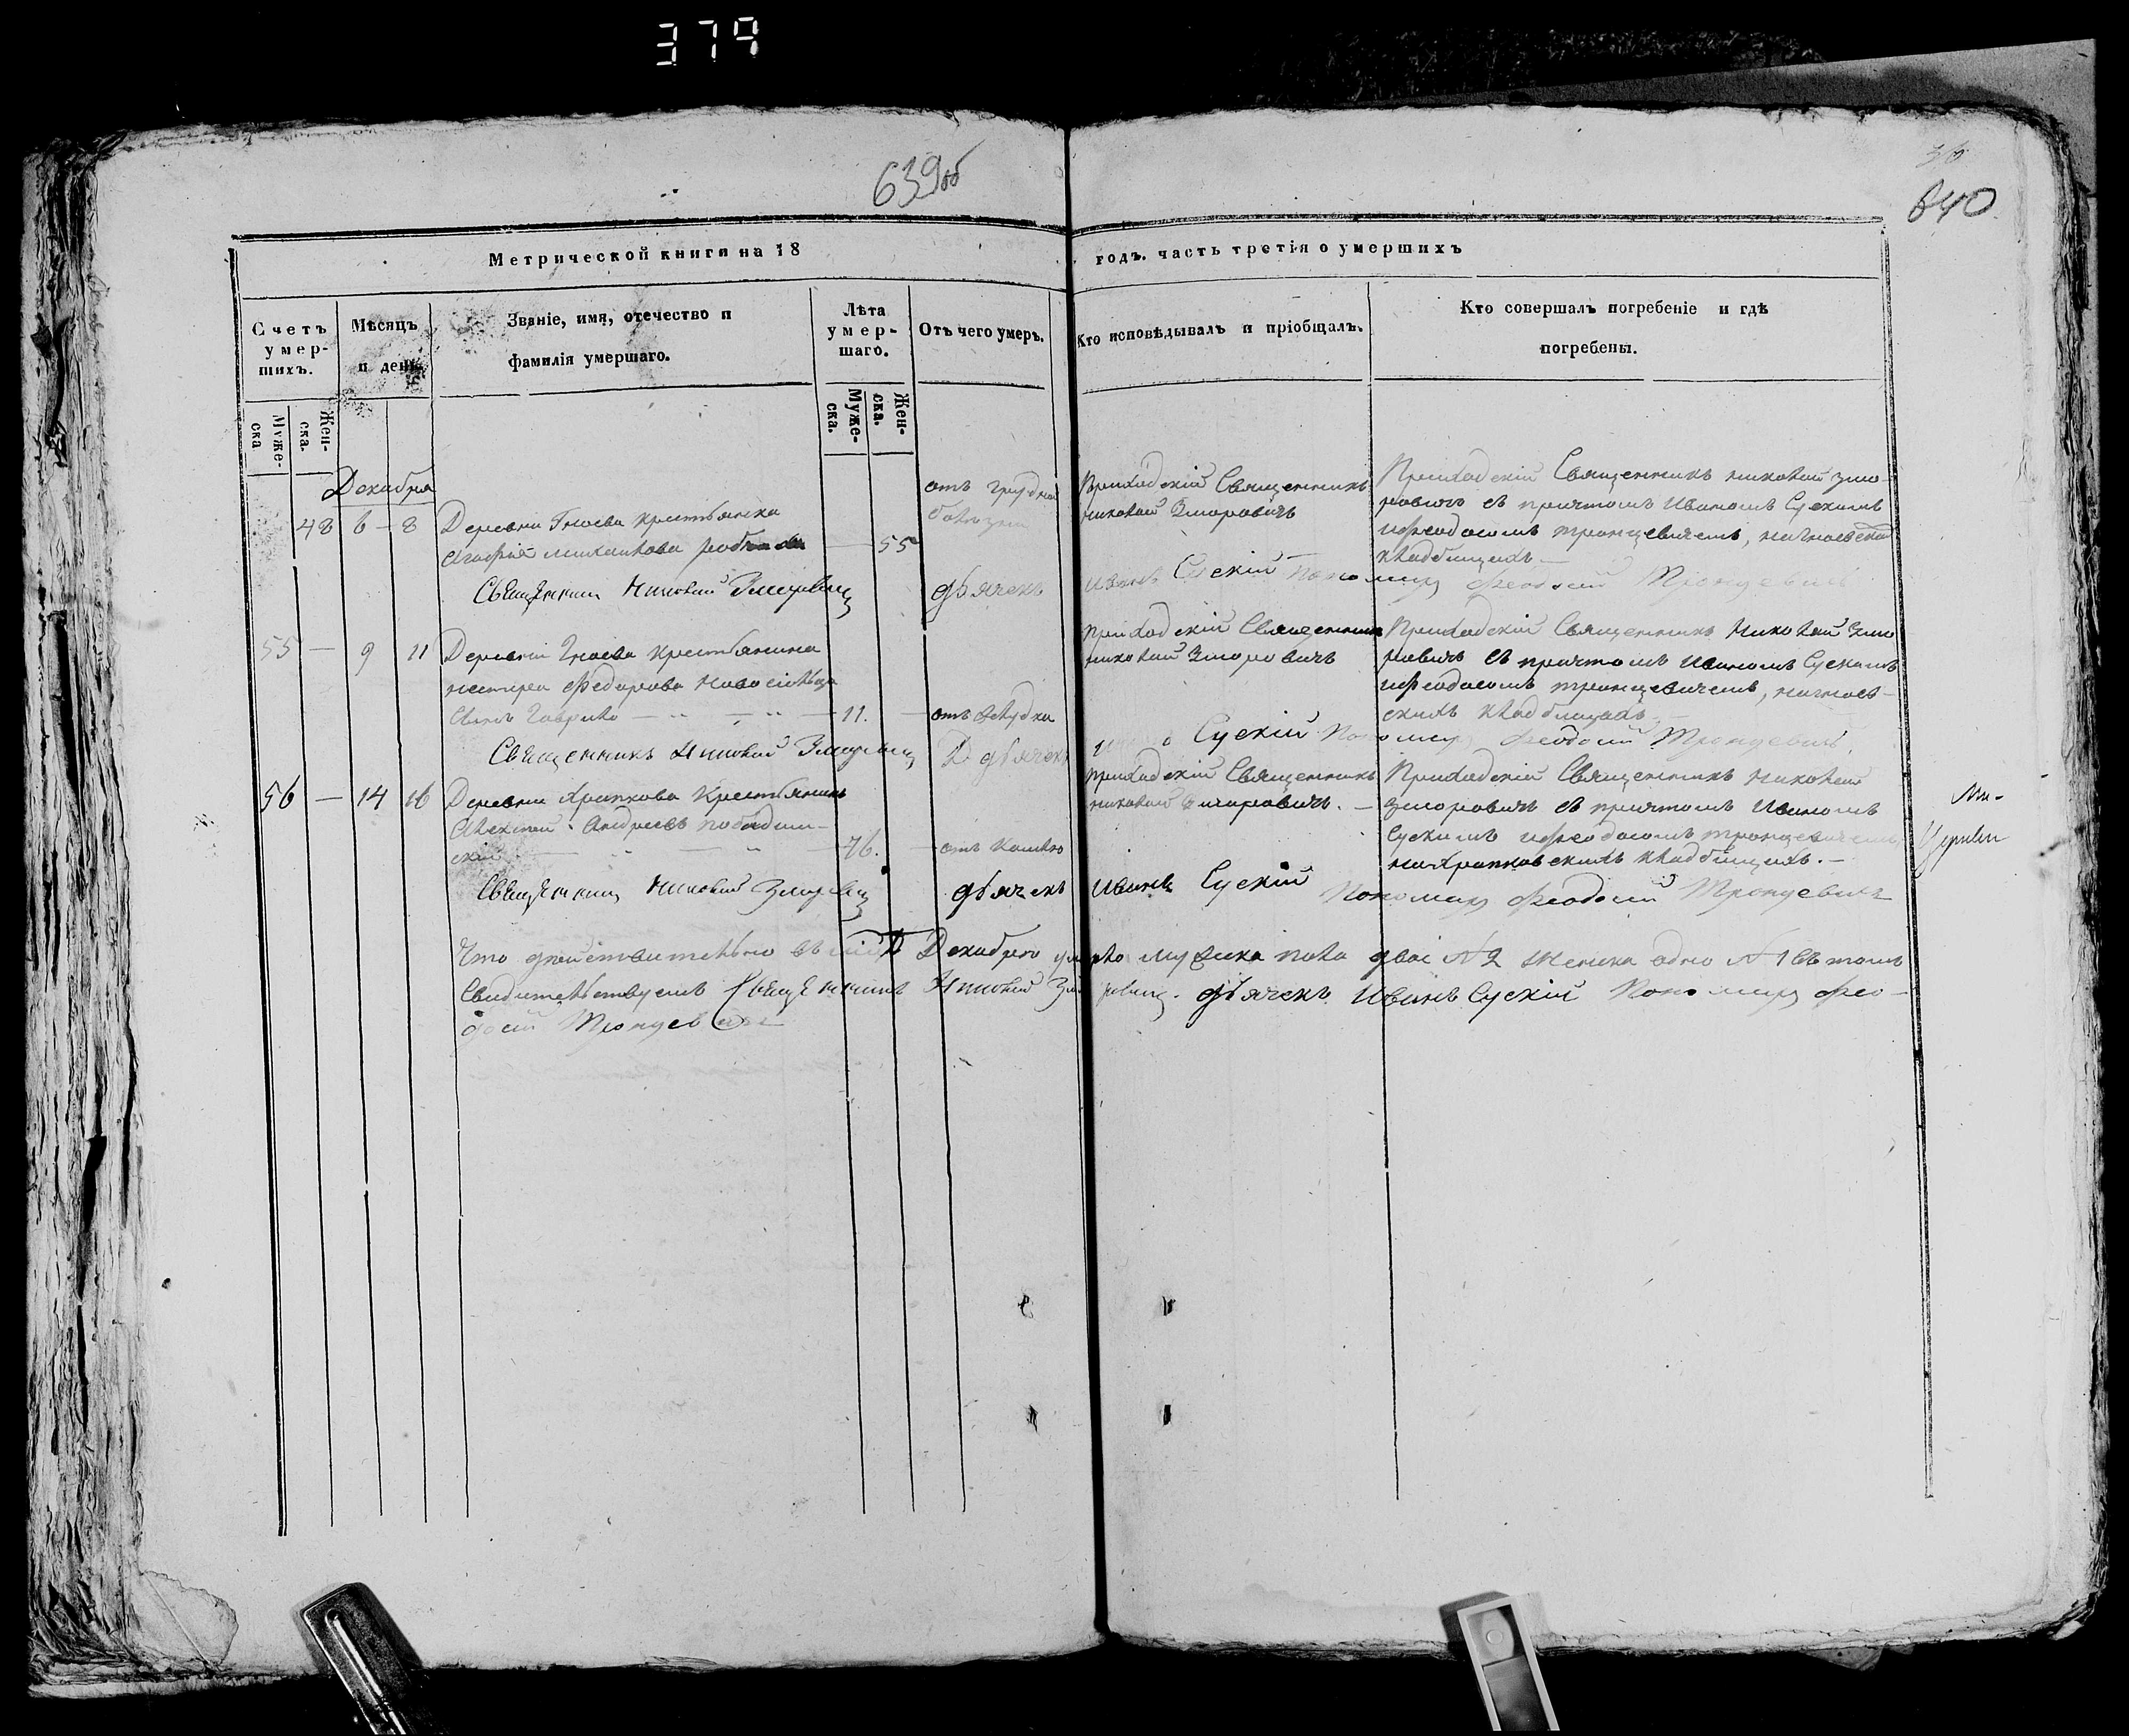 379
639об
36
640
Метрической книги на 18
годъ. часть третія о умершихъ
Счетъ умер-шихъ.
Мѣсяцъ и день
Званіе, имя, отечество и
фамилія умершаго.
Лѣта умер-шаго.
Отъ чего умеръ.
Кто исповѣдывалъ и пріобщалъ.
Кто совершалъ погребеніе и гдѣ
погребены.
Муже-ска
Жен-ска.
Муже-ска.
Жен-ска.
Декабря
48 6 – 8
Деревни Гноева крестьянка
Агафія Михайлова
55
отъ грудной
болѣзни
Приходскій Священникъ
Николай Зморовичъ
Приходскій Священникъ Николай Змо
ровичъ съ причтомъ Иваномъ Сускимъ
иФеодосіемъ Тронцевичемъ, на Гноевскихъ
кладбищахъ.
Священникъ Николай Зморовичъ дьячекъ Иванъ Сускій Пономарь Феодосій Тронцевичъ
55 — 9 11
Деревни Гноева крестьянина
Федорова
сынъ Гаврило
11.
отъ
Приходскій Священникъ
Николай Зморовичъ
Приходскій Священникъ Николай Змо
ровичъ съ причтомъ Иваномъ Сускимъ
иФеодосіемъ Тронцевичемъ, на Гноев-
скихъ кладбищахъ.
Священникъ Николай Зморовичъ Дьячекъ Сускій Пономарь Феодосій Тронцевичъ.
56 — 14 16
Деревни Храпкова Крестьянинъ
Алексей Андреевъ
скій
76.
отъ кашлю
Приходскій Священникъ
Николай Зморовичъ. —
Приходскій Священникъ Николай
Зморовичъ съ причтомъ Иваномъ
Сускимъ иФеодосіемъ Тронцевичемъ,
на Храпковскихъ кладбищахъ. —
Священникъ Николай Зморовичъ дьячекъ Иванъ Сускій Пономарь Феодосій Тронцевичъ
Что дѣйствительно въ Декабрѣ умерло мужеска пола двое №2 женска одно №1 въ томъ
Свидѣтельствуемъ Священникъ Николай Зморовичъ. дьячекъ Иванъ Сускій Пономарь Фео-
досій Тронцевичъ